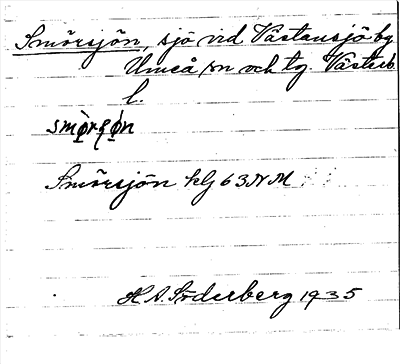 Smörsjön, sjö vid Västansjö by
Umeå sn och tg. Västerb.
l.
Smörsjön kg 63 NM
H A. Söderberg 1935